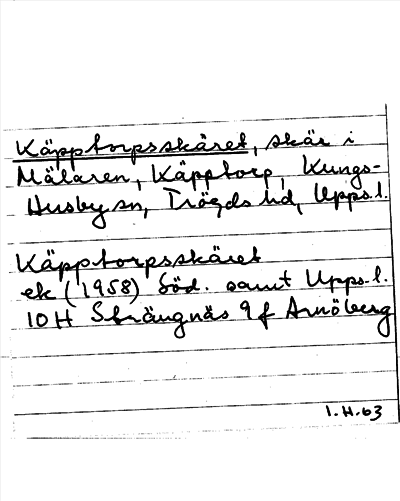 Käpptorpsskäret, skär i
Mälaren, Käpptorp, Kungs-
Husby sn, Trögds hd, Upps.l.
Käpptorpsskäret
ek (1958) Söd. samt Upps.l.
10H Strängnäs 9f Arnöberg
1.H.63